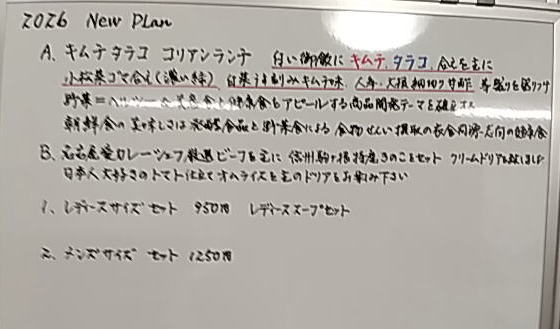 2026 New Plan
A. キムチタラコ コリアンランチ 白い御飯に キムチ、タラコ、合えを主に
小松菜ゴマ合え(濃い緑)、白菜うす切りみキムチ味、人参、大根細切り甘酢
野菜=ヘルシー 健康食をアピールする商品開発テーマを
朝鮮食の美味しさは発酵食品と野菜食による食物せんい摂取の医食同源志向の健康食
B. 名古屋愛カレーシェフ厳選ビーフを主に 信州駒ヶ根特産きのこをセット クリームドリアも
日本人大好きのトマト仕立てオムライスを主のドリアをお楽み下さい
1. レディースサイズ セット 950円 レディーススープセット
2. メンズサイズ セット 1250円